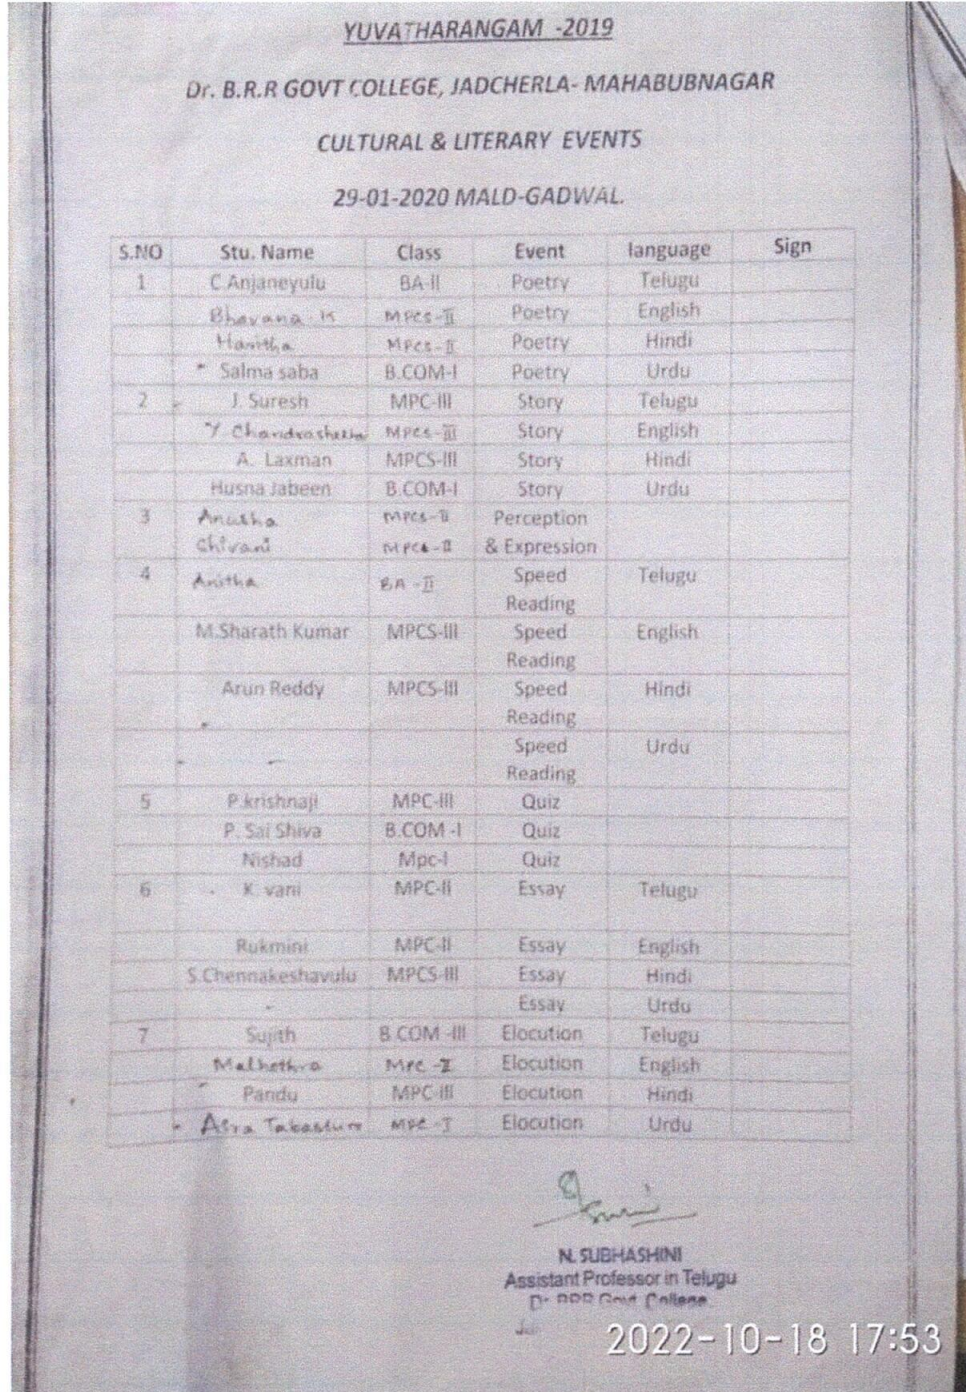 YUVATHARANGAM -2019
Dr. B.R.R GOVT COLLEGE, JADCHERLA- MAHABUBNAGAR
CULTURAL & LITERARY EVENTS
29-01-2020 MALD-GADWAL.
S.NO Stu. Name Class Event language Sign
1 C.Anjaneyulu BA-II Poetry Telugu
Bhavana . K MPCS-II Poetry English
Hanitha MPCS-II Poetry Hindi
Salma saba B.COM-I Poetry Urdu
2 J. Suresh MPC-III Story Telugu
Y Chandrashekhar MPCS-III Story English
A. Laxman MPCS-III Story Hindi
Husna Jabeen B.COM-I Story Urdu
3 Anusha MPCS-II Perception
Shivani MPCS-II & Expression
4 Anitha BA -II Speed Telugu
Reading
M.Sharath Kumar MPCS-III Speed English
Reading
Arun Reddy MPCS-III Speed Hindi
Reading
- Speed Urdu
Reading
5 P.krishnaji MPC-III Quiz
P. Sai Shiva B.COM -I Quiz
Nishad Mpc-I Quiz
6 K. vani MPC-II Essay Telugu
Rukmini MPC-II Essay English
S.Chennakeshavulu MPCS-III Essay Hindi
- Essay Urdu
7 Sujith B.COM -III Elocution Telugu
Malhethra MPC -I Elocution English
Pandu MPC-III Elocution Hindi
Asra Tabassum MPC -I Elocution Urdu
N. SUBHASHINI
Assistant Professor in Telugu
Dr. BRR Govt. College
2022-10-18 17:53